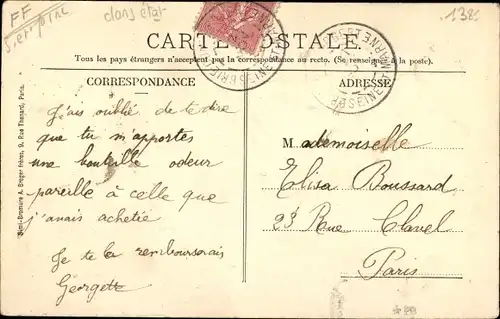 FF
dans état
1385
CARTE POSTALE
Tous les pays étrangers n'acceptent pas la correspondance au recto. (Se renseigner à la poste).
CORRESPONDANCE
ADRESSE
J'ais oublié de te dire
que tu m'apportes
une bouteille odeur
pareille à celle que
j'avais achetée
Je te la rembourserais
Georgette
Mademoiselle
Elisa Boussard
Rue Clavel
Paris
Semi-Bromure A. Breger Frères, 9, Rue Thénard, Paris.
SEINE-ET-MARNE